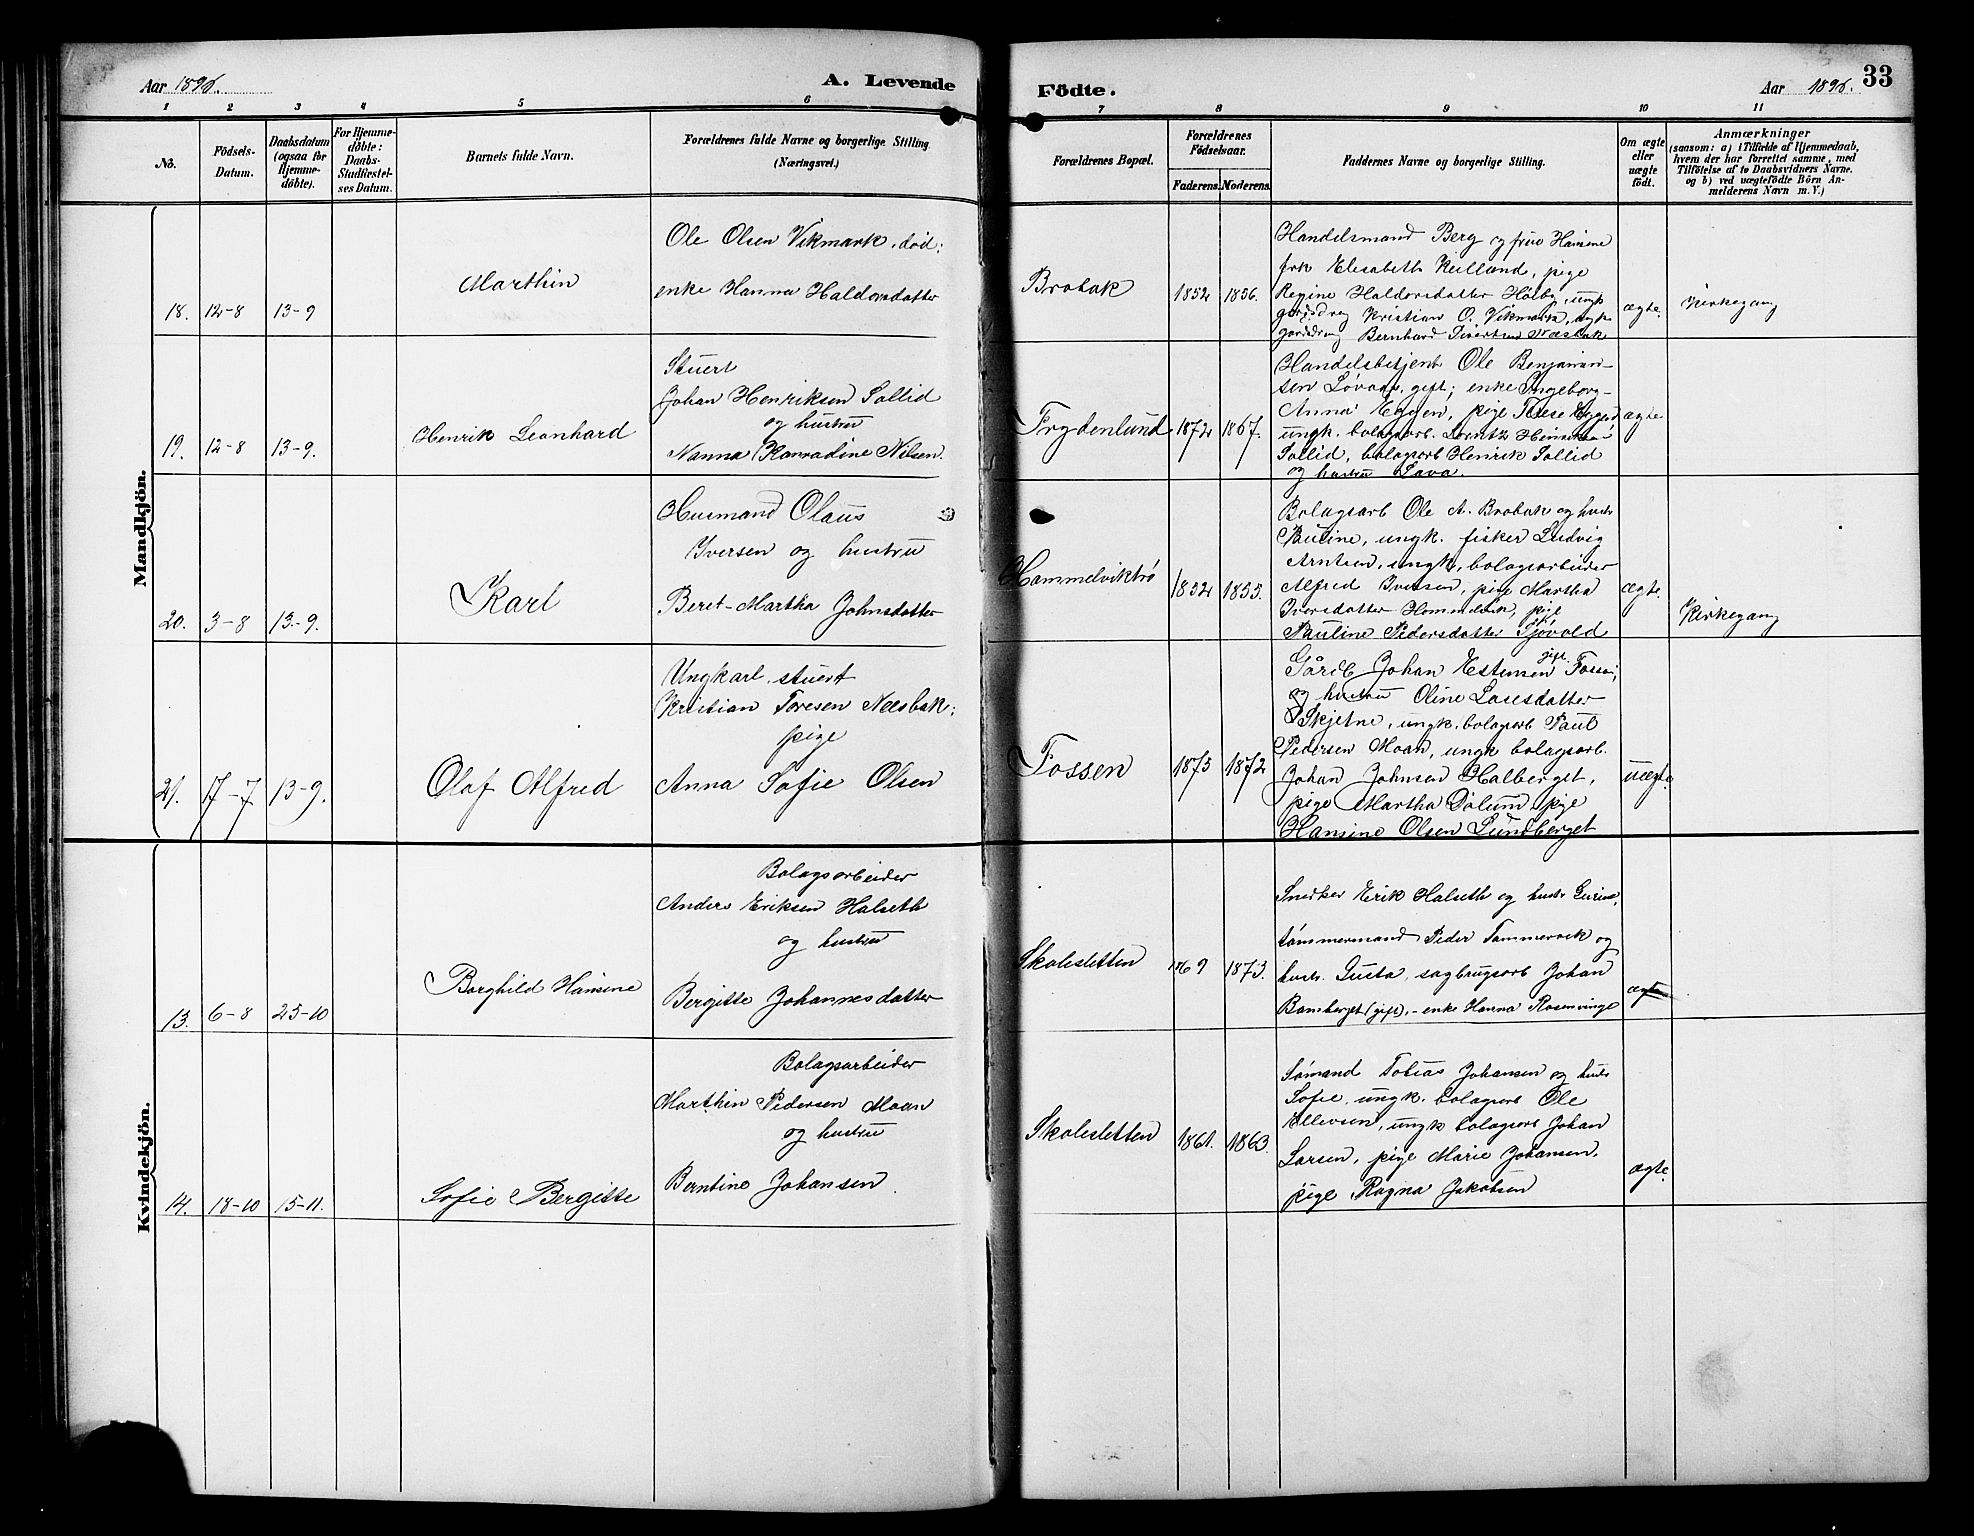 Aar 1896.
A. Levende
Födte.
Aar 1896.
33
1 2 3 4 5 6 7 8 9 10 11
No.
Födsels-
Datum.
Daabsdatum
(ogsaa for
Hjemme-
døbte).
For Hjemme-
døbte:
Daabs-
Stadfæstel-
ses Datum.
Barnets fulde Navn.
Forældrenes fulde Navne og borgerlige Stilling.
(Næringsvei.)
Forældrenes Bopæl.
Forældrenes
Födselsaar.
Faderens. Moderens.
Faddernes Navne og borgerlige Stilling.
Om ægte
eller
uægte
födt.
Anmærkninger
(saasom: a) i Tilfælde af Hjemmedaab,
hvem der har forrettet samme, med
Tilföielse af to Daabsvidners Navne.
og b) ved uægtefödte Börn An-
melderens Navn m. V.)
Mandkjön.
18. 12-8 13-9
Marthin
Ole Olsen Vikmark, död;
enke Hanna Haldorsdatter
Brobak
1852 1856.
Handelsmand Berg og frue Hansine
frk Elisabeth Keilland, pige
Regine Haldorsdatter Hölby, ungk
gaardbrug Kristian O. Vikmark, ungk
gaardbrug Bernhard Sivertsen Næsbak
ægte.
Kirkegang
19. 12-8 13-9.
Henrik Leonhard
Stuert
Johan Henriksen Sollid
og hustru
Nanna Konradine Nilsen.
Frydenlund
1872 1867.
Handelsbetjent Ole Benjamin-
sen Lövaas, gift; enke Ingeborg-
Anna Eggen, pige Terese Eggen,
ungk. bolagsarb. Lorntz Henriksen
Sollid, bolagsarb Henrik Sollid
og hustru Lava.
ægte
20. 3-8 13-9.
Karl
Husmand Olaus
Iversen og hustru
Beret-Martha Johnsdatter
Hammelviktrö
1852 1855.
Bolagsarb Ole A. Brobak og hustr
Pauline, ungk. fisker Ludvig
Arntsen, ungk. bolagsarbeider
Alfred Iversen, pige Martha
Iversdatter Hommelvik, pige
Pauline Pedersdatter Sjövold
ægte.
Kirkegang
21. 17-7 13-9.
Olaf Alfred
Ungkarl, stuert
Kristian Toresen Neesbak;
pige
Anna Sofie Olsen
Fossen
1875 1872
Gårdb Johan Estensen gift Fossen;
og hustru Oline Larsdatter
Skjetne, ungk. bolagsarb Paul
Pedersen Moan, ungk bolagsarb.
Johan Johnsen Halberget,
pige Martha Dölum, pige
Hansine Olsen Lundberget
uægte
Kvindekjön.
13. 6-8 25-10
Borghild Hansine
Bolagsarbeider
Anders Eriksen Halseth
og hustru
Bergitte Johannesdatter
Skolesletten
1869 1873.
Snedker Erik Halseth og hustr Gurine,
tömmermand Peder Tammervik og
hustr. Gusta, sagbrugsarb Johan
Bamberget (gift), - enke Hanna Rosenvinge
ægte
14. 18-10 15-11.
Sofie Bergitte
Bolagsarbeider
Marthin Pedersen Moan
og hustru
Berntine Johansen.
Skolesletten
1861. 1863.
Sömand Tobias Johansen og hustr
Sofie, ungk. bolagsarb Ole
Ellevsen, ungk bolagsarb Johan
Larsen, pige Marie Johansen,
pige Ragna Jakobsen
ægte.